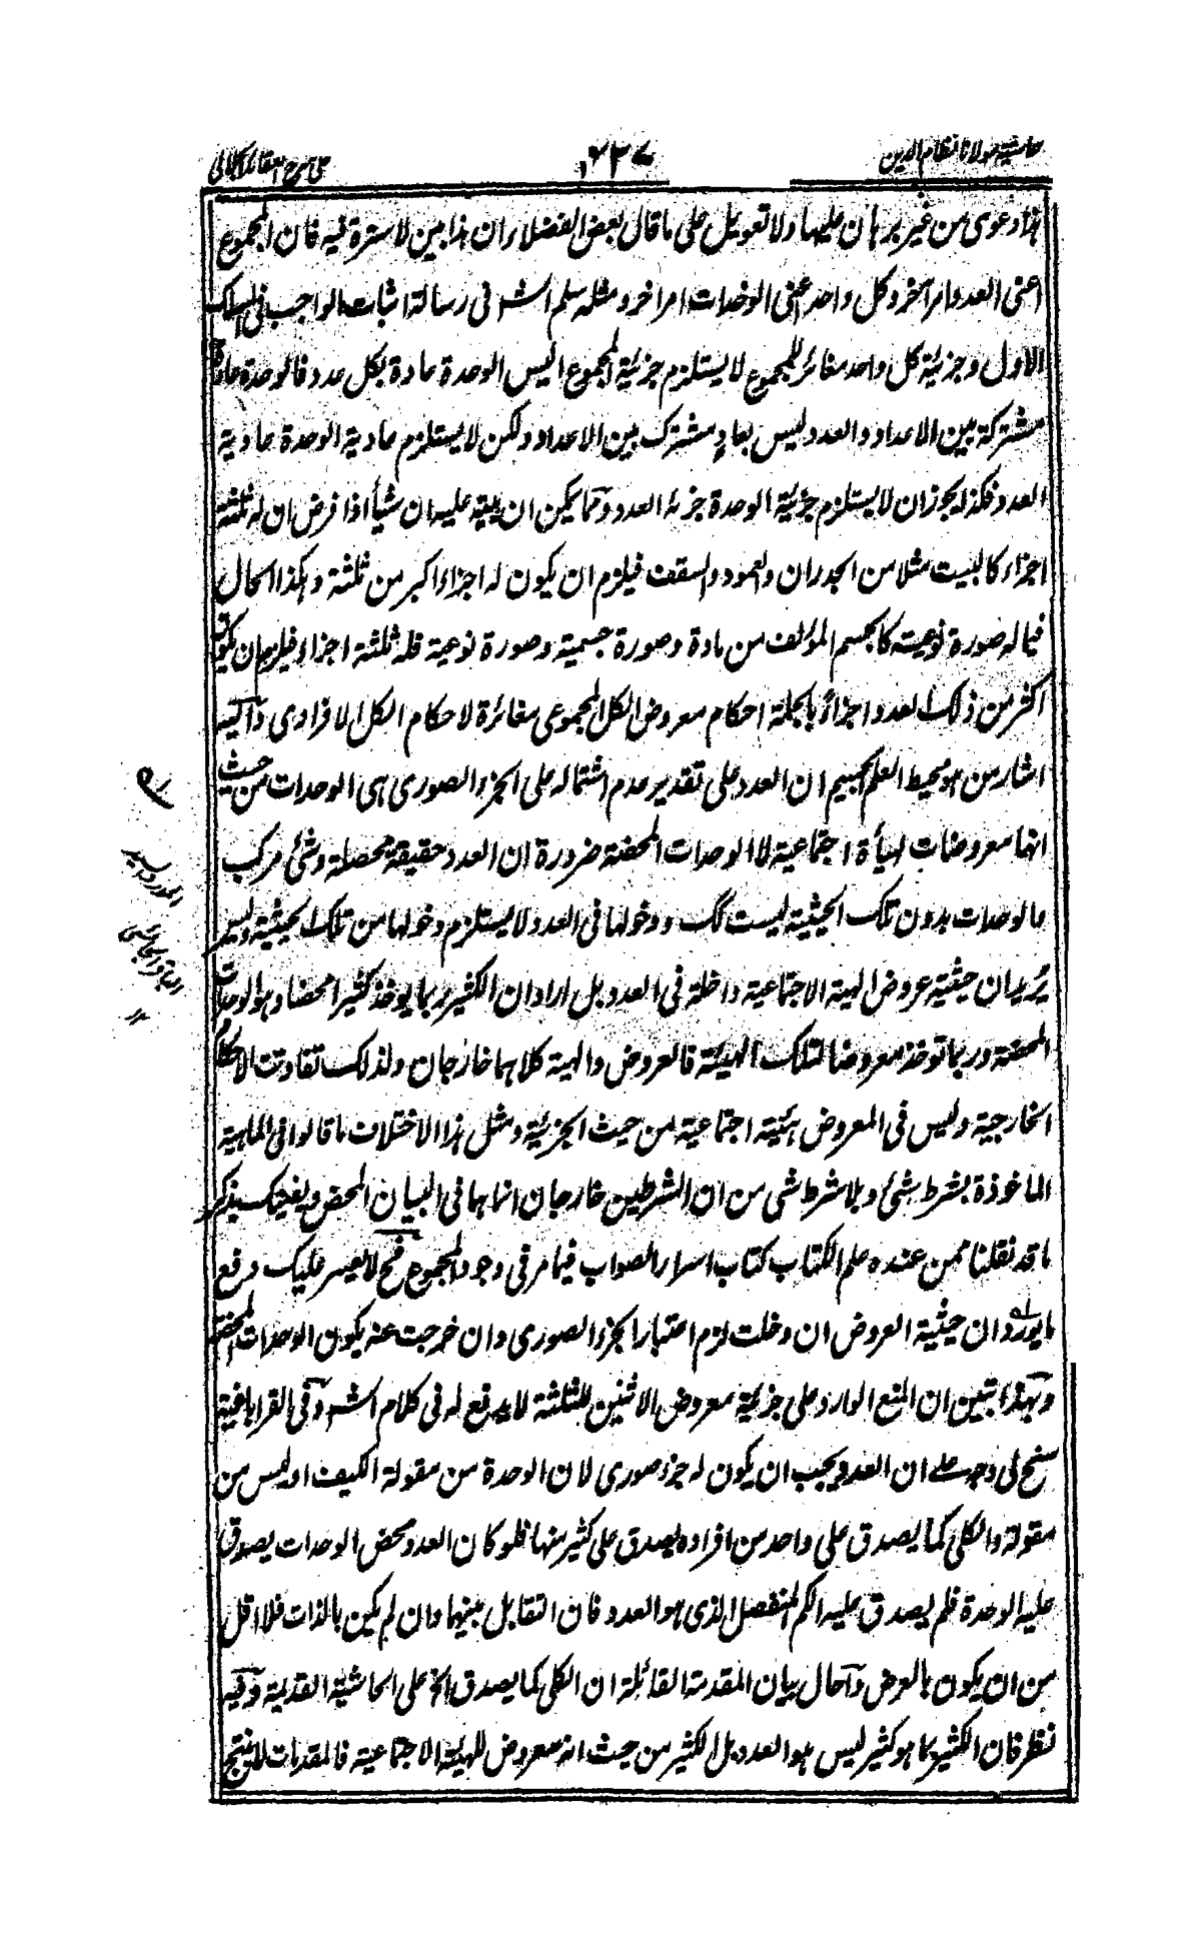 حاشية مولانا نظام الدين
٢٢٧
على شرح العقائد الجلالى
هذا دعوى من غير برهان عليها ولا تعويل على ما قال بعض الفضلاء ان هذا بين لا سترة فيه فان المجموع
اعنى العدد امر آخر وكل واحد اعنى الوحدات امر اخر ومثله سلم الش فى رسالة اثبات الواجب فى المسلك
الاول وجزئية كل واحد مغائر للمجموع لا يستلزم جزئية المجموع اليس الوحدة عادة بكل عدد فالوحدة عادة
مشتركة بين الاعداد والعدد ليس بعاد مشترك بين الاعداد ولكن لا يستلزم عادية الوحدة عادية
العدد فكذا يجوز ان لا يستلزم جزئية الوحدة جزئية العدد ومما يمكن ان ينبه عليه ان شيأ اذا فرض ان له ثلثة
اجزاء كالبيت مثلا من الجدران والعمود والسقف فيلزم ان يكون له اجزاء اكبر من ثلثة وهكذا الحال
فيما له صورة نوعية كالجسم المؤلف من مادة وصورة جسمية وصورة نوعية فله ثلثة اجزاء فيلزم ان يكون
اكثر من ذلك العدد اجزاؤه بالجملة احكام معروض الكل المجموعى مغائرة لاحكام الكل الافرادى وآليه
اشار من هو محيط العلم الجسيم ان العدد على تقدير عدم اشتماله على الجزء الصورى هى الوحدات من حيث
انها معروضات لهيأة اجتماعية لا الوحدات المحضة ضرورة ان العدد حقيقة محصلة وشئ مركب
ما لوحدات بدون تلك الحيثية ليست كك ودخولها فى العدد لا يستلزم دخولها من تلك الحيثية وليس
يريد ان حيثية عروض الهيئة الاجتماعية داخلة فى العدد بل اراد ان الكثير ربما يوخذ كثيرا محضا وهو الوحدات
المحضة وربما توخذ معروضا لتلك الهيئة فالعروض والهيئة كلاهما خارجان ولذلك تفاوتت الاحكام
الخارجية وليس فى المعروض هيئة اجتماعية من حيث الجزئية ومثل هذا الاختلاف ما قالوا فى الماهية
الماخوذة بشرط شئ وبلا شرط شى من ان الشرطين خارجان انما هما فى البيان المحض ويغنيك بذكر
ما قد نقلنا ممن عنده علم الكتاب كتاب اسرار الصواب فيما مر فى وجود المجموع فح لا تعسر عليك دفع
ما يورد ان حيثية العروض ان دخلت لزم اعتبار الجزء الصورى وان خرجت عنه يكون الوحدات المحضة
وبهذا تبين ان المنع الوارد على جزئية معروض الاثنين للثلثة لا يدفع له فى كلام الش وفى القراباغية
سنح لى وجه على ان العدد يجب ان يكون له جزء صورى لان الوحدة من مقولة الكيف او ليس من
مقولة والكلى كما يصدق على واحد من افراده يصدق على كثير منها فلو كان العدد محض الوحدات يصدق
عليه الوحدة فلم يصدق عليه الكم المنفصل الذى هو العدد فان التقابل بينهما وان لم يكن بالذات فلا اقل
من ان يكون بالعرض وآحال بيان المقدمة القائلة ان الكلى كما يصدق الخ على الحاشية القديمة وفيه
نظر فان الكثير بما هو كثير ليس هو العدد بل الكثير من حيث انه معروض للهيئة الاجتماعية فالمقدمات لا ينتج